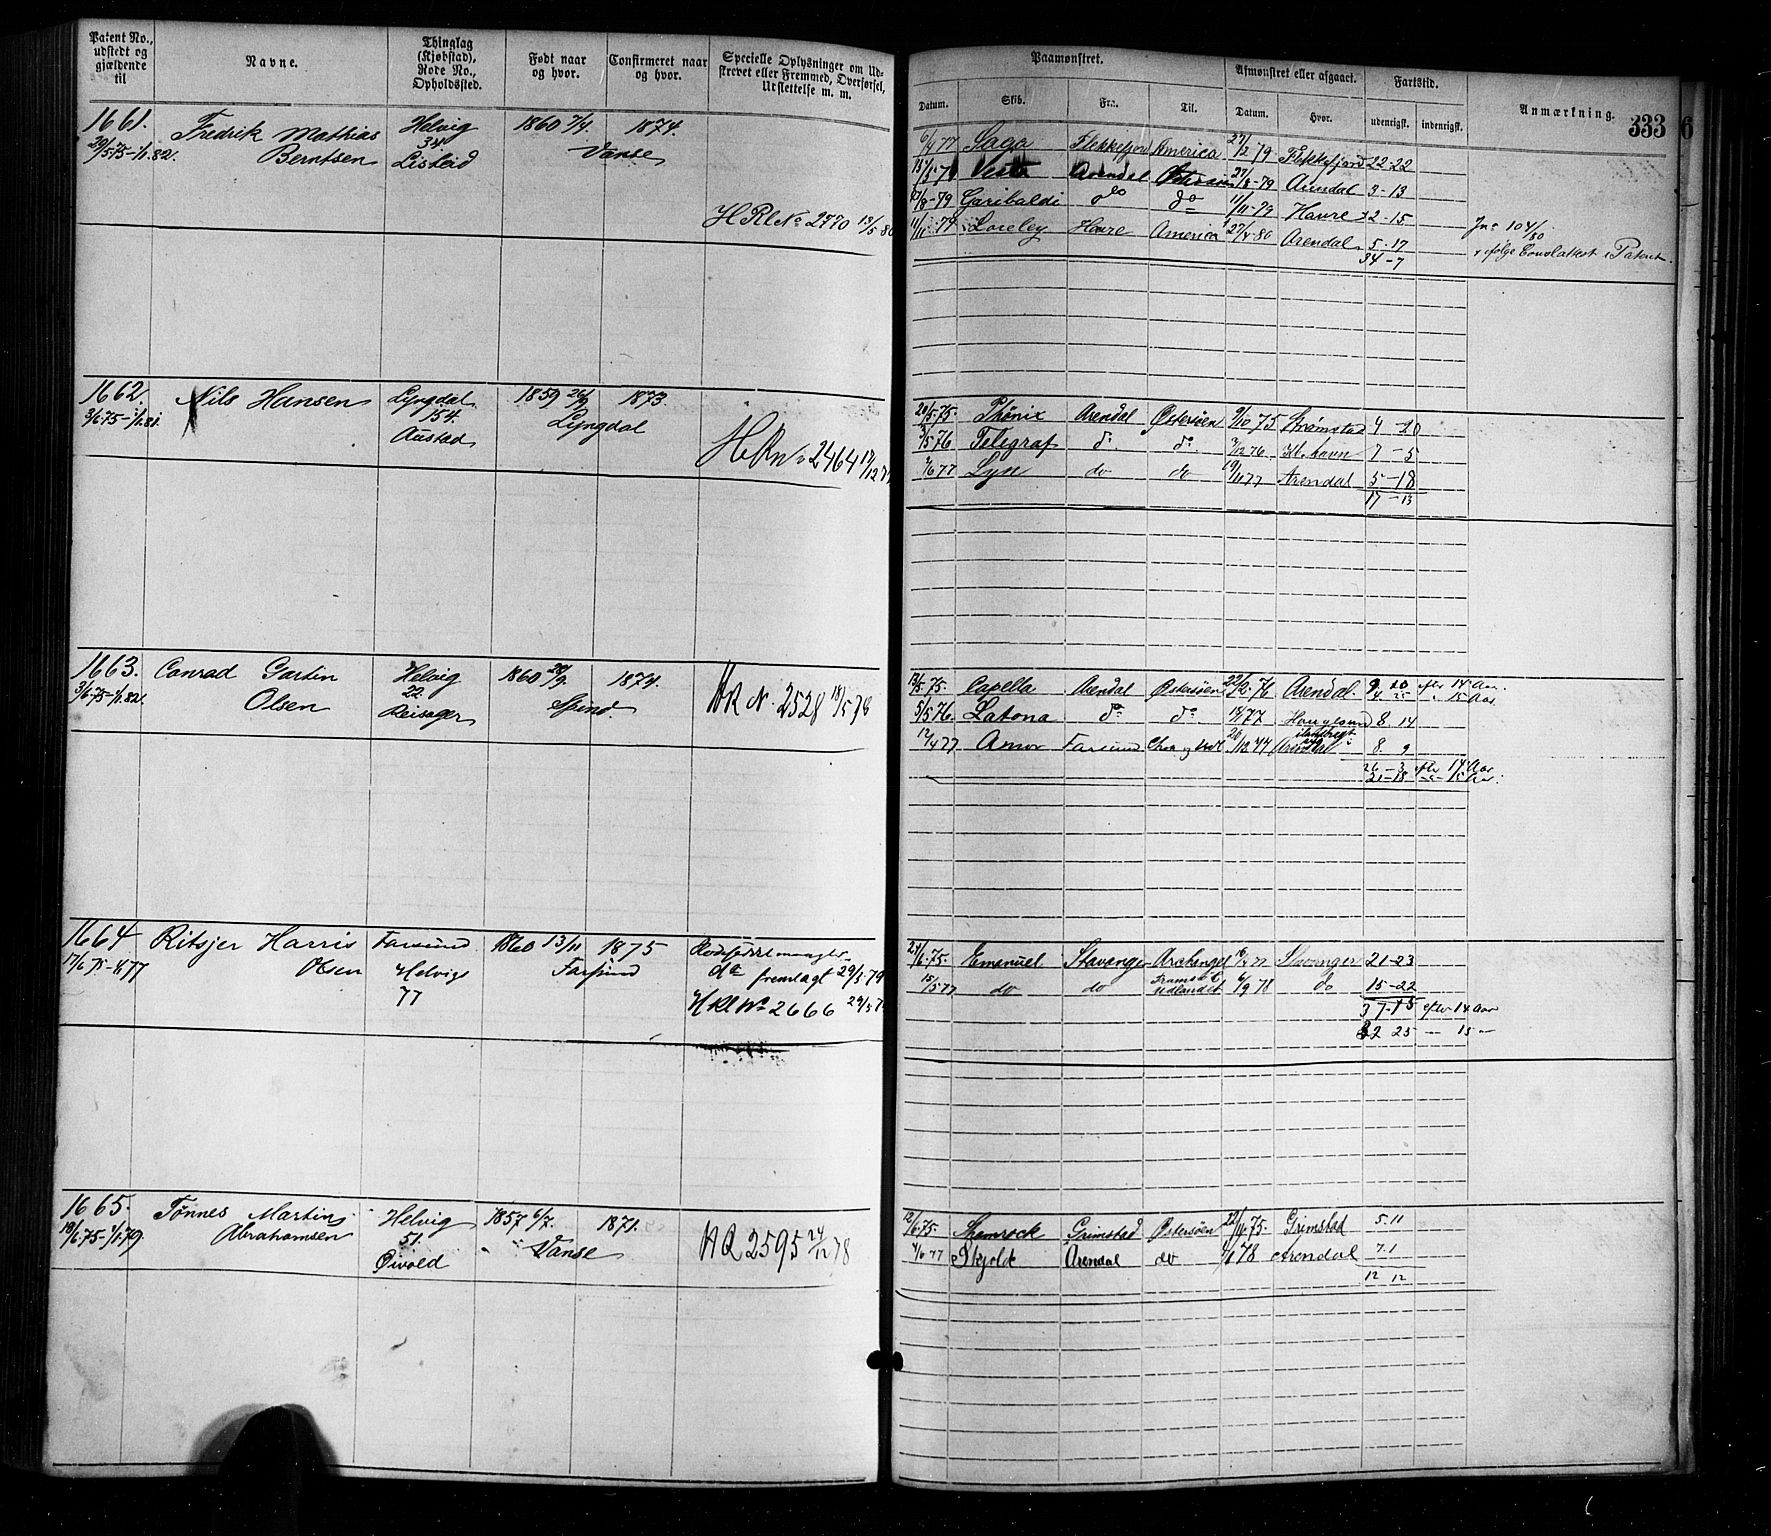 Patent No., udstedt og gjældende til
Navne.
Thinglag (Kjøbstad), Rode No., Opholdssted.
Født naar og hvor.
Confirmeret naar og hvor.
Specielle Oplysninger om Udskrevet eller Fremmed, Overførsel, Udslettelse m. m.
Paamønstret.
Afmønstret eller afgaaet.
Fartstid.
Anmærkning.
333
Datum.
Skib.
Fra.
Til.
Datum.
Hvor.
udenrigsk.
indenrigsk.
1661. Fredrik Mathias Helvig 1860 7/4 1874.
29/5 75-1/1.82. Berntsen 34 Vanse
Listeid
H Rl No 2770 13/5 80
6/4 77 Saga Flekkefjord America 27/12 79 Flekkefjord 22-22
Vesta Arendal Østersøen 27/8-79 Arendal 3-13
17/8-79 Garibaldi do do 11/11-79 Havre 2-15
11/11-79 Loreley Havre America 27/4 80 Arendal 5-17
34-7
Jn: 104/80
ifølge Consulattest i Patent.
1662. Nils Hansen Lyngdal 1859 26/9 1873.
3/6.75-1/1.81. 154. Lyngdal
Austad
H Rl No 2464 17/12
20/5-75. Phønix Arendal Østersøen 9/10 75 Strømstad 4-20
3/5 76 Telegraf do. do. 7/12 76 Kbhavn 7-5
7/6 77 Lyn do do 19/11 77 Arendal 5-18
17-13
1663. Conrad Gartin Helvig 1860 20/9 1874.
3/6.75-1/1.82. Olsen 22. Spind.
Reisager
HR N. 2528 18/5 78
13/5 75. Capella Arendal Østersøen 22/2-76 Arendal. 9 20 eftr 14 Aar
4 25 " 15 Aar
5/5 76. Latona do do 14/1 77 Haugesund 8 14
17/4 77 Amor Farsund 20/12 77 Arendal 8. 9
26-3 eftr 14 Aar
21-18 " 15 Aar.
1664 Ritsjer Harris Farsund 1860 13/11 1875
17/6 75-1/1 77 Olsen Helvigs Farsund
77
do fremlagt 29/3.79
H Rl No 2666 29/3 7
24/6.75. Emanuel Stavanger Archangel 77 Stavanger 21-23
15/5 77 do do Udlandet 6/9 78 do 15-22
37-15 eftr 14 Aar
32 25 — 15 —
1665. Tønnes Martin Helvig 1857 6/7. 1871.
18/6.75-1/1.79. Abrahamsen 51. Vanse
Øivold
HR 2595 24/12 78
12/6.75. Shamrock Grimstad Østersøen 22/11 75. Grimstad 5.11
4/6 77 Skjold Arendal do 1/1 78 Arendal 7.1
12 12